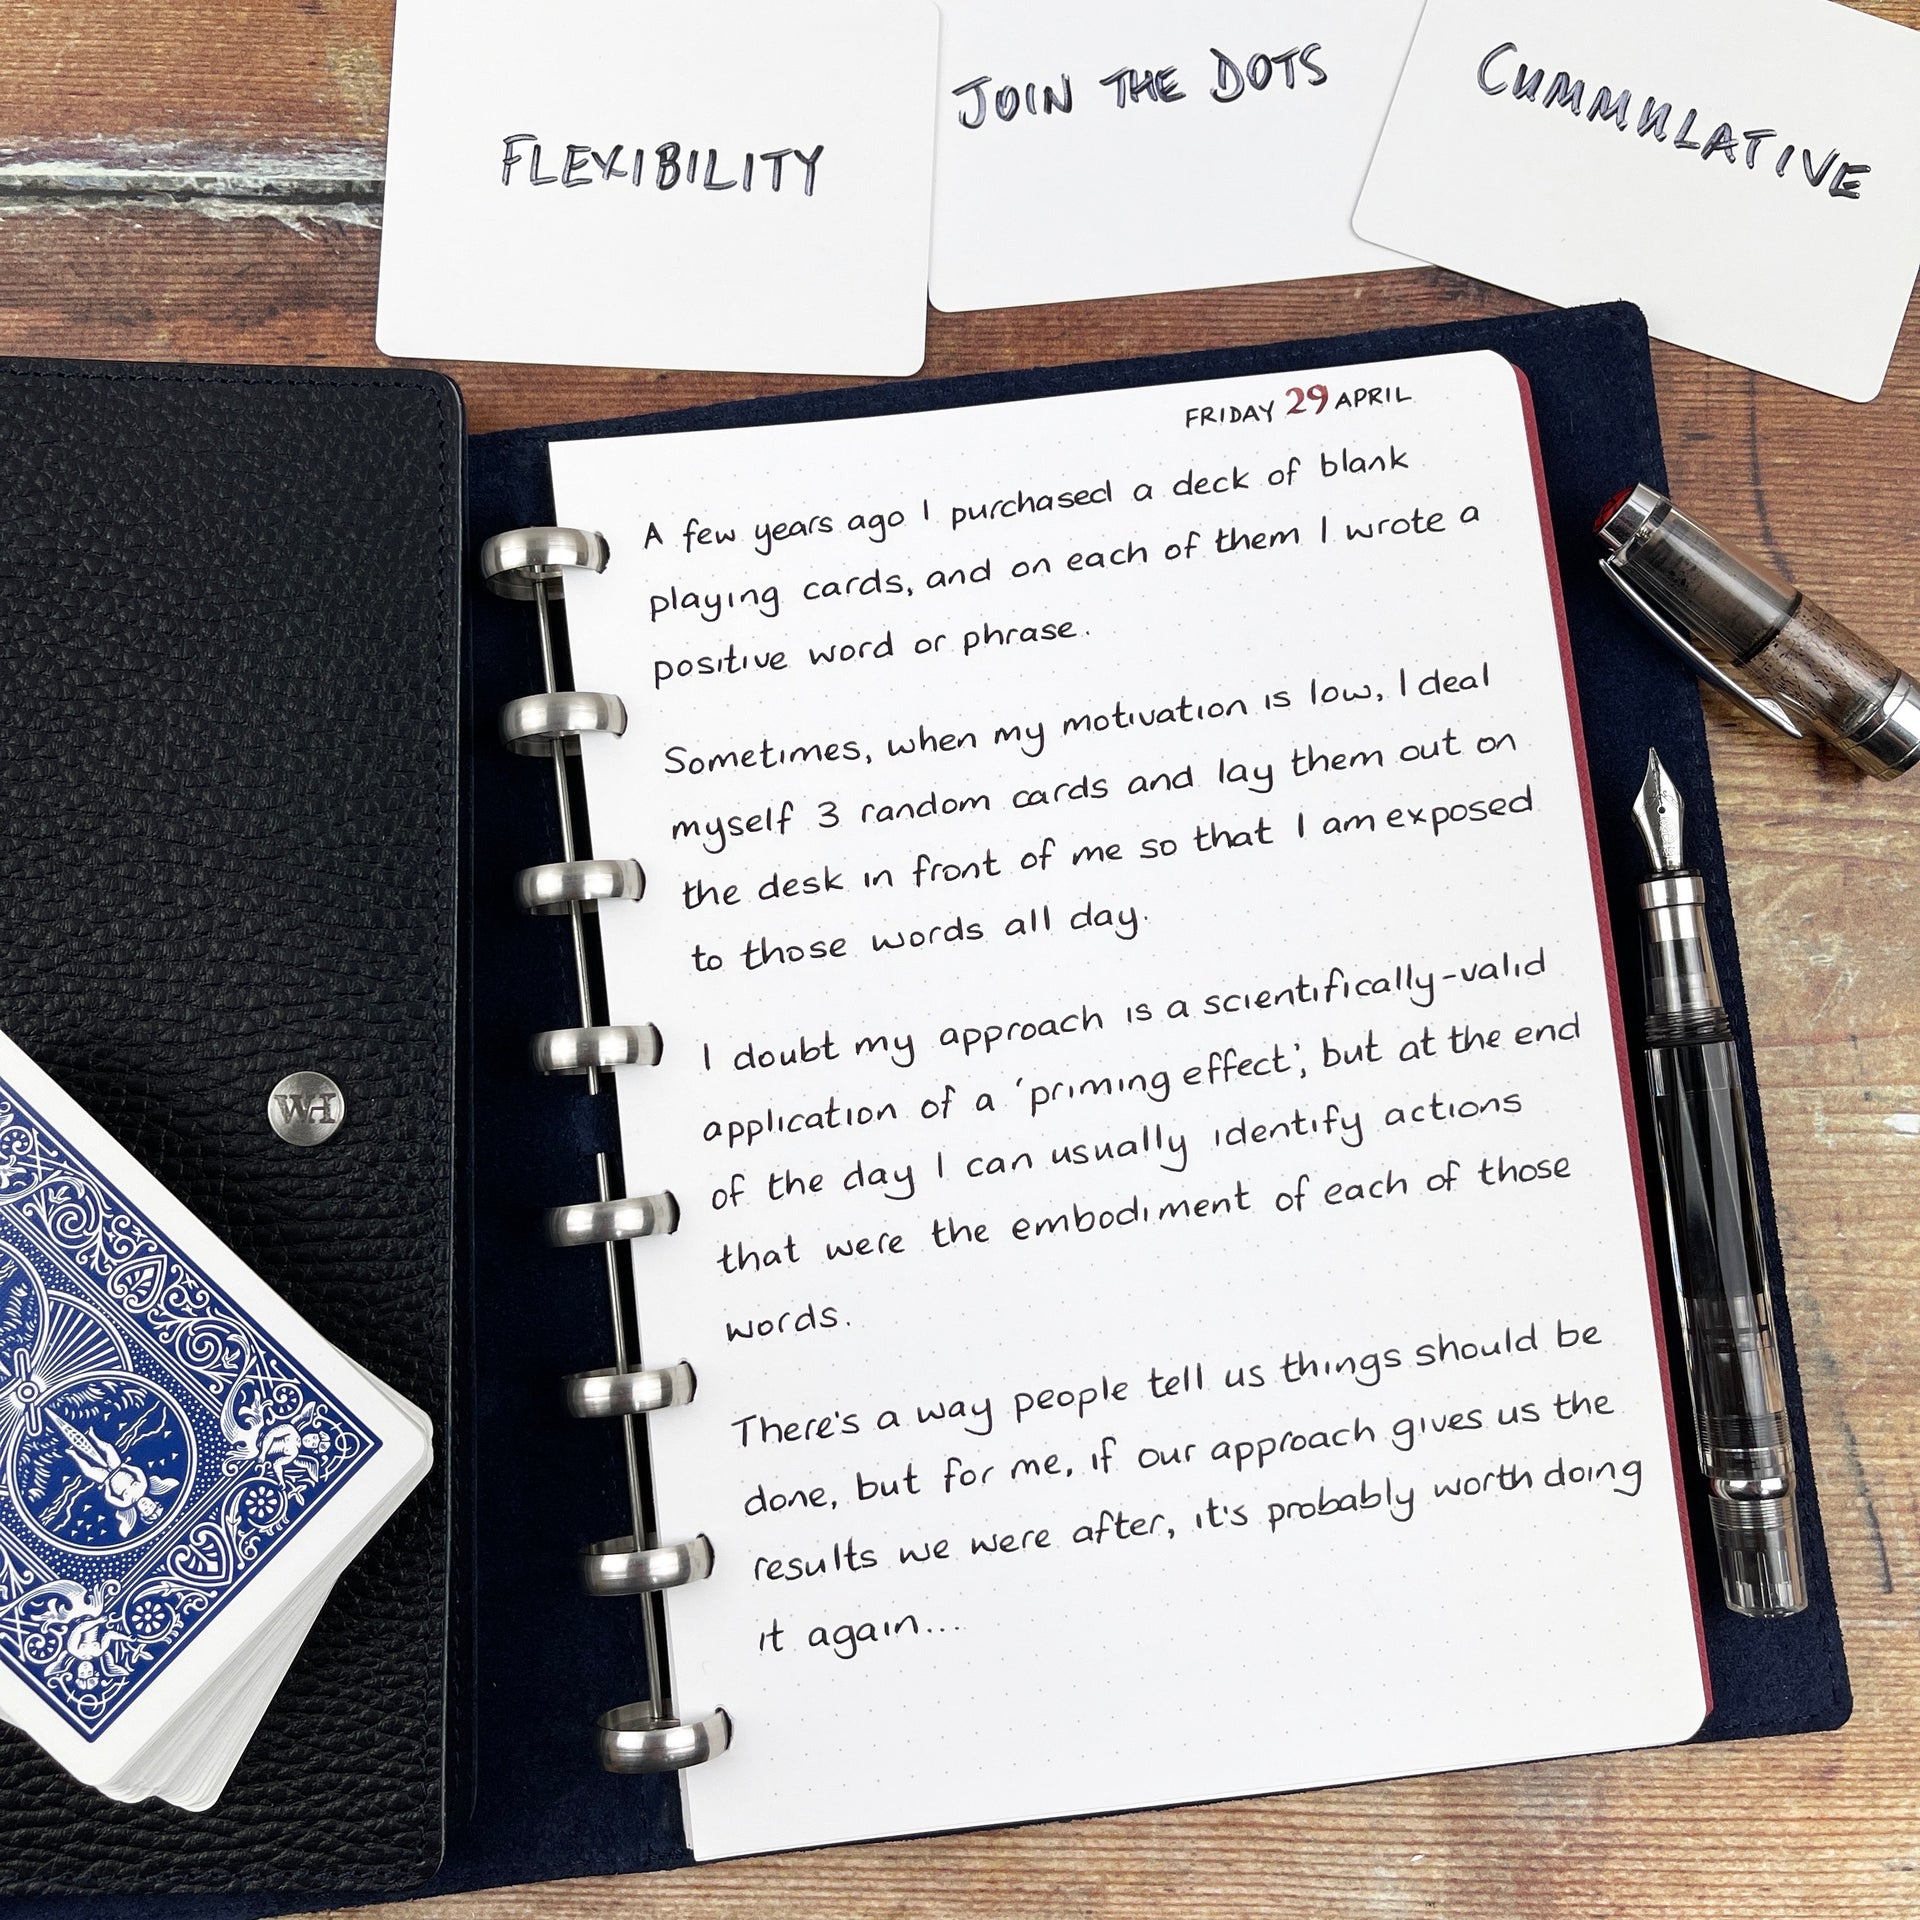 FLEXIBILITY
JOIN THE DOTS
CUMMULATIVE
FRIDAY 29 APRIL
A few years ago I purchased a deck of blank
playing cards, and on each of them I wrote a
positive word or phrase.
Sometimes, when my motivation is low, I deal
myself 3 random cards and lay them out on
the desk in front of me so that I am exposed
to those words all day.
I doubt my approach is a scientifically-valid
application of a 'priming effect', but at the end
of the day I can usually identify actions
that were the embodiment of each of those
words.
There's a way people tell us things should be
done, but for me, if our approach gives us the
results we were after, it's probably worth doing
it again...
WH